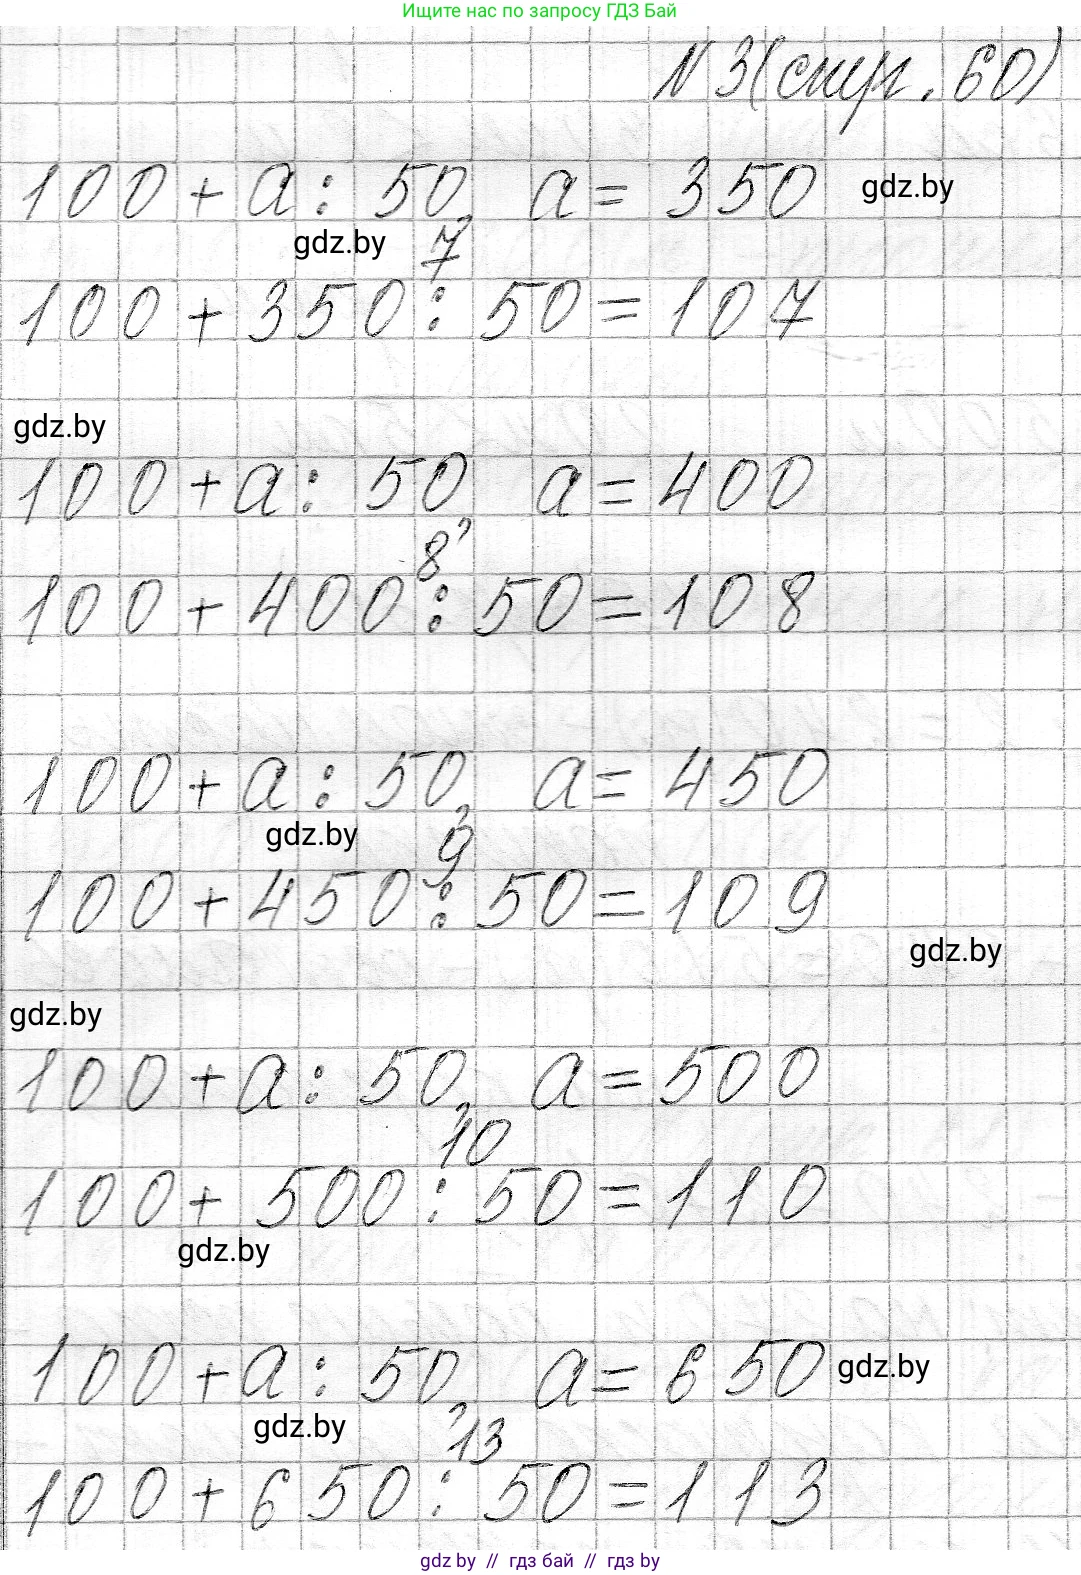 Ищите нас по запросу ГДЗ Бай
№ 3 (стр. 60)
100 + а : 50, а = 350 gdz.by
gdz.by 7
100 + 350 : 50 = 107
gdz.by
100 + а : 50, а = 400
8
100 + 400 : 50 = 108
100 + а : 50, а = 450
gdz.by 9
100 + 450 : 50 = 109
gdz.by
gdz.by
100 + а : 50, а = 500
10
100 + 500 : 50 = 110
gdz.by
100 + а : 50, а = 650 gdz.by
gdz.by 13
100 + 650 : 50 = 113
gdz by // гдз бай // гдз by